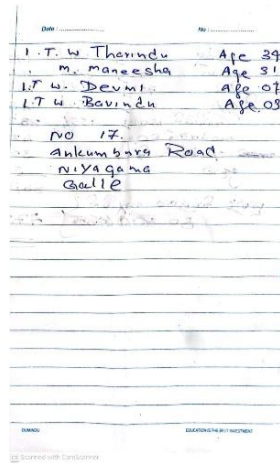 Date : ........................ No : ........................
I. T. W Tharindu Age 34
M. Maneesha Age 31
I.T W. Devmi Age 07
I.T W. Bavindu Age 03
NO 17.
Ankumbura Road
Niyagama
Galle
EDUCATION IS THE BEST INVESTMENT
Scanned with CamScanner